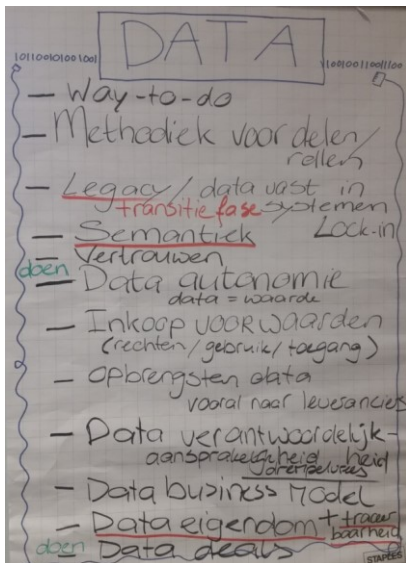 DATA
— Way-to-do
— Methodiek voor delen/
rollen
— Legacy / data vast in
transitiefase systemen
Lock-in
— Semantiek
— Vertrouwen
doen
— Data autonomie
data = waarde
— Inkoop voorwaarden
(rechten/gebruik/toegang)
— Opbrengsten data
vooral naar leveranciers
— Data verantwoordelijk-
heid
aansprakelijkheid
— Data business model
— Data eigendom + traceer
baarheid
doen
— Data deals
STAPLES